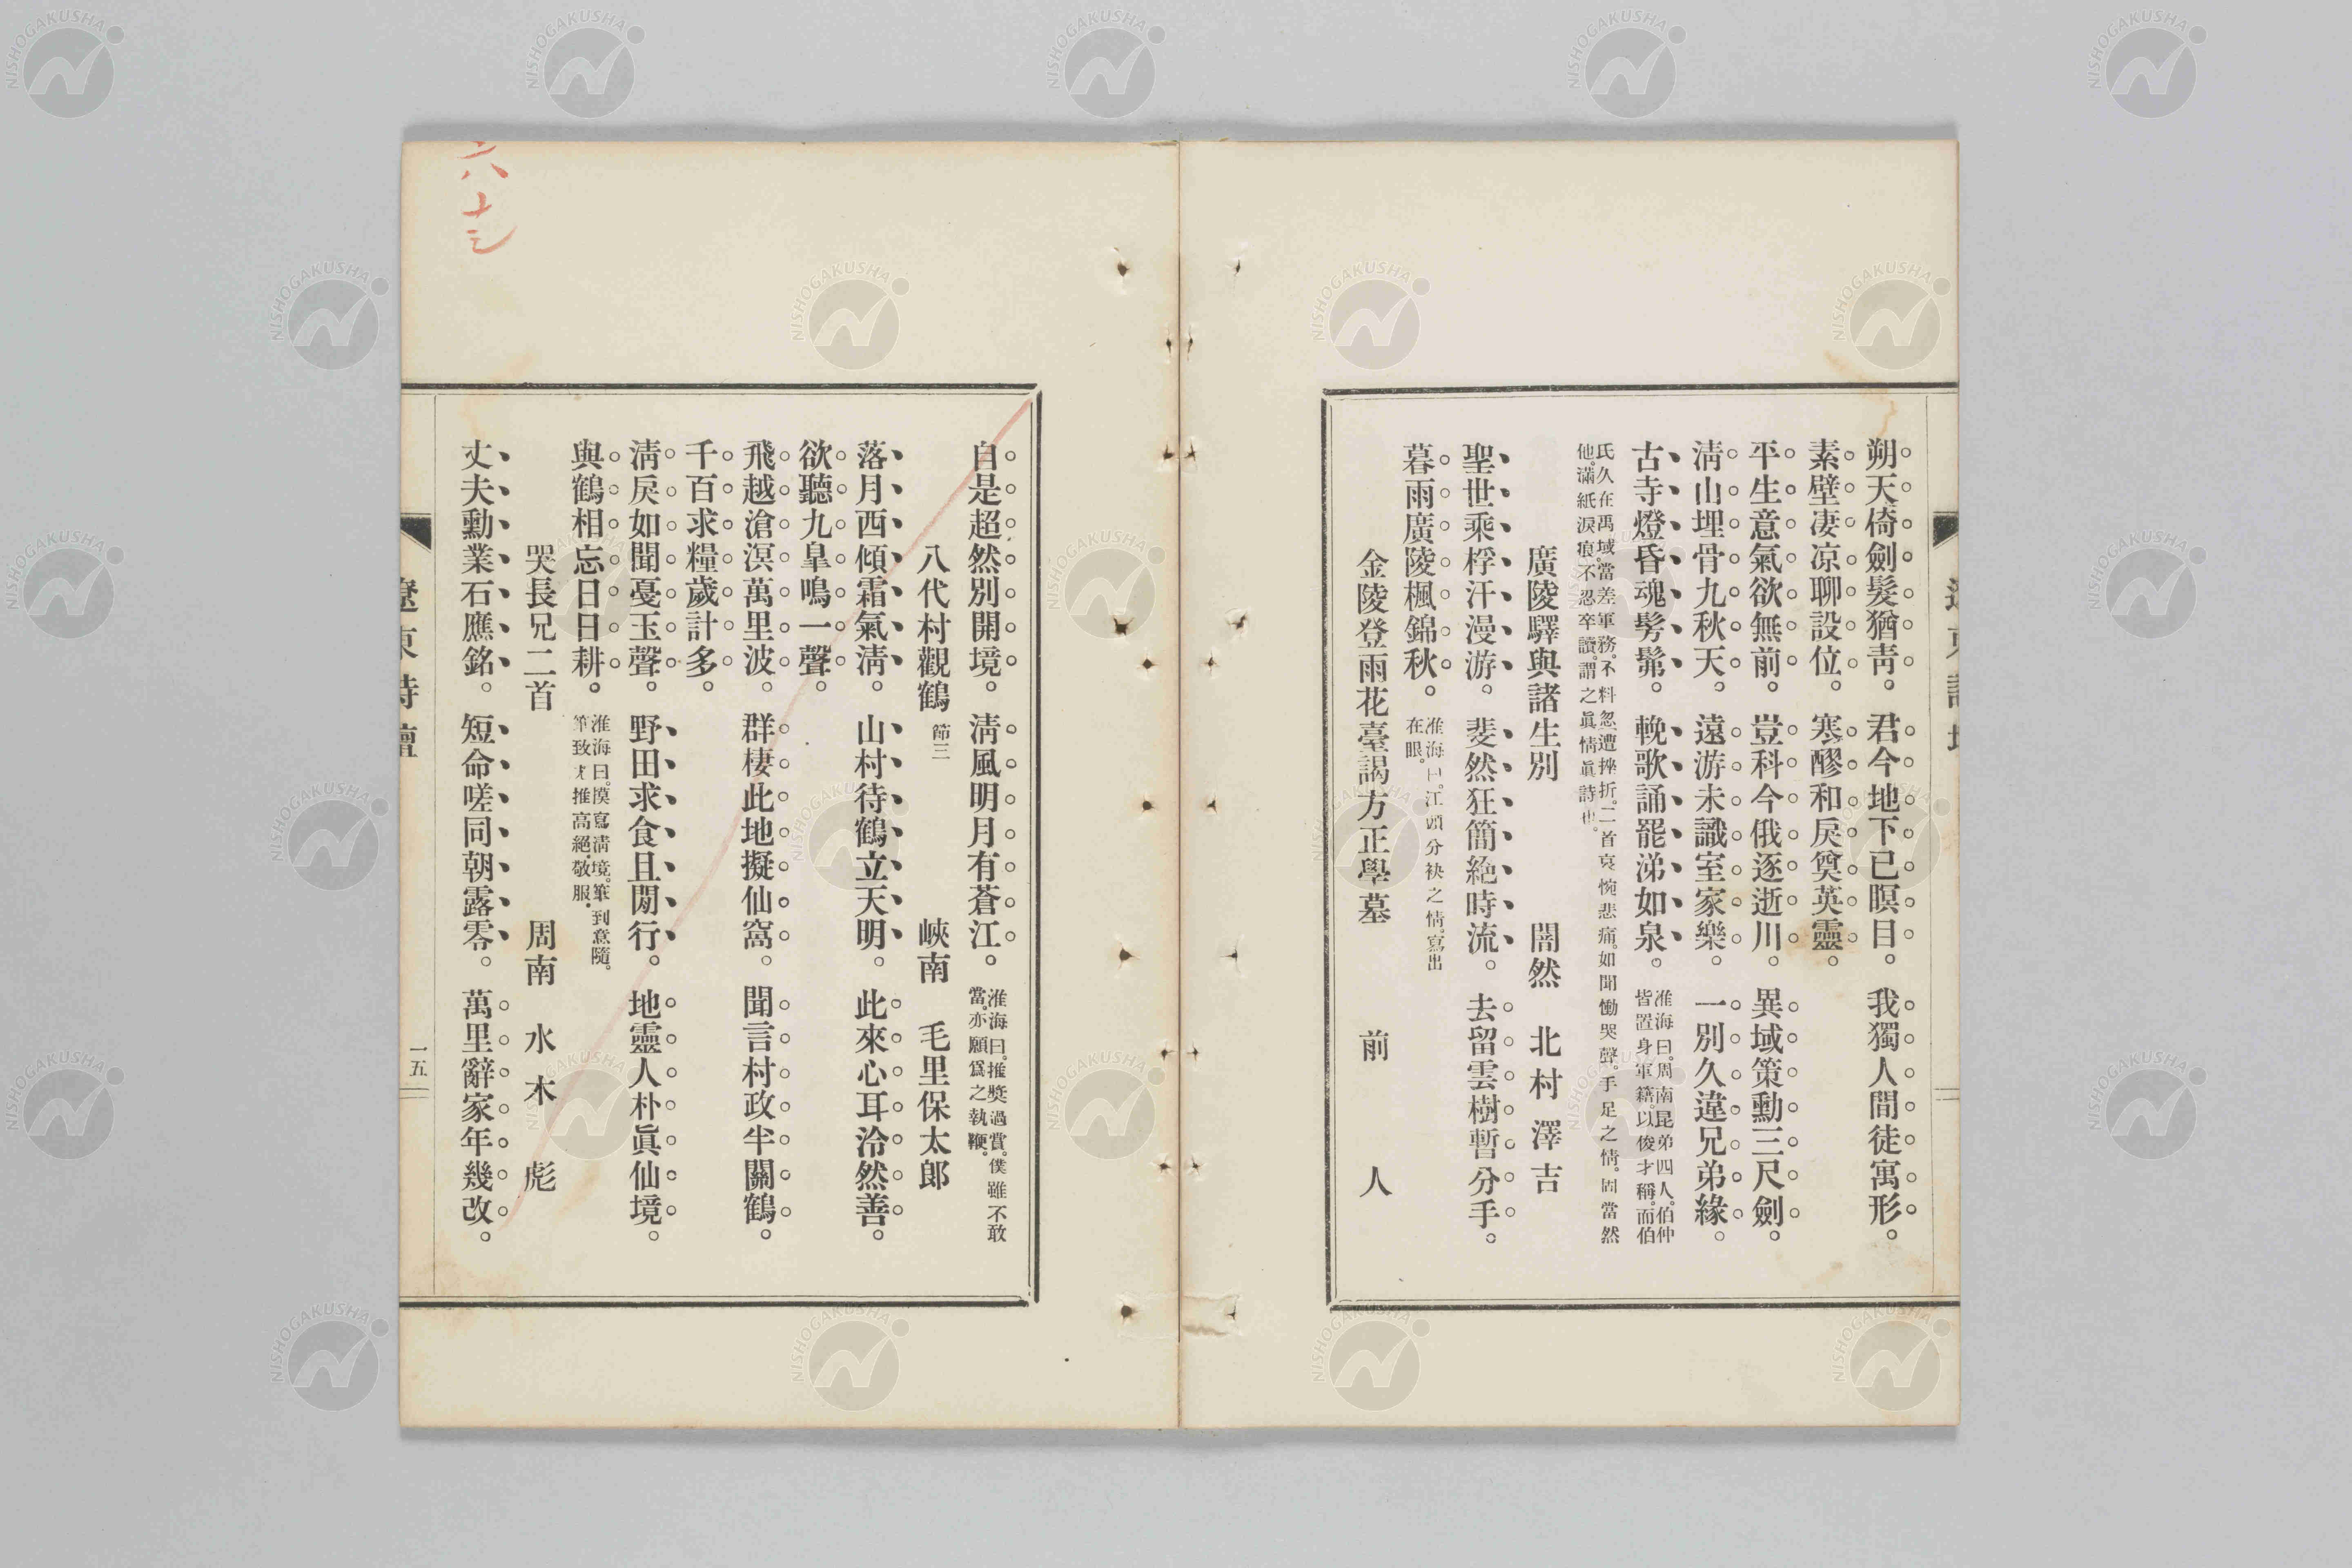 朔天倚劍髮猶靑。君今地下已瞑目。我獨人間徒寓形。
素壁凄凉聊設位。寒醪和戾奠英靈。
平生意氣欲無前。豈科今俄逐逝川。異域策勳三尺劍。
淸山埋骨九秋天。遠游未識室家樂。一別久違兄弟緣。
古寺燈昏魂髣髴。輓歌誦罷涕如泉。
淮海曰。周南昆弟四人。伯仲
皆置身軍籍。以俊才稱。而伯
氏久在禹域。當差軍務。不料忽遭挫折。二首哀惋悲痛。如聞慟哭聲。手足之情。固當然
他。滿紙淚痕。不忍卒讀。謂之眞情眞詩也。
廣陵驛與諸生別 闇然 北村澤吉
聖世乘桴汗漫游。斐然狂簡絶時流。去留雲樹暫分手。
暮雨廣陵楓錦秋。
淮海曰。江頭分袂之情。寫出
在眼。
金陵登雨花臺謁方正學墓 前人
自是超然別開境。淸風明月有蒼江。
淮海曰。推奬過賞。僕雖不敢
當。亦願爲之執鞭。
八代村觀鶴 節三 峽南 毛里保太郎
落月西傾霜氣淸。山村待鶴立天明。此來心耳泠然善。
欲聽九皐鳴一聲。
飛越滄溟萬里波。群棲此地擬仙窩。聞言村政半關鶴。
千百求糧歲計多。
淸戾如聞戞玉聲。野田求食且閒行。地靈人朴眞仙境。
與鶴相忘日日耕。
淮海曰。摸寫淸境。筆到意隨。
筆致才推高絕。敬服。
哭長兄二首 周南 水木彪
丈夫勳業石應銘。短命嗟同朝露零。萬里辭家年幾改。
遼東詩壇
一五
六十三